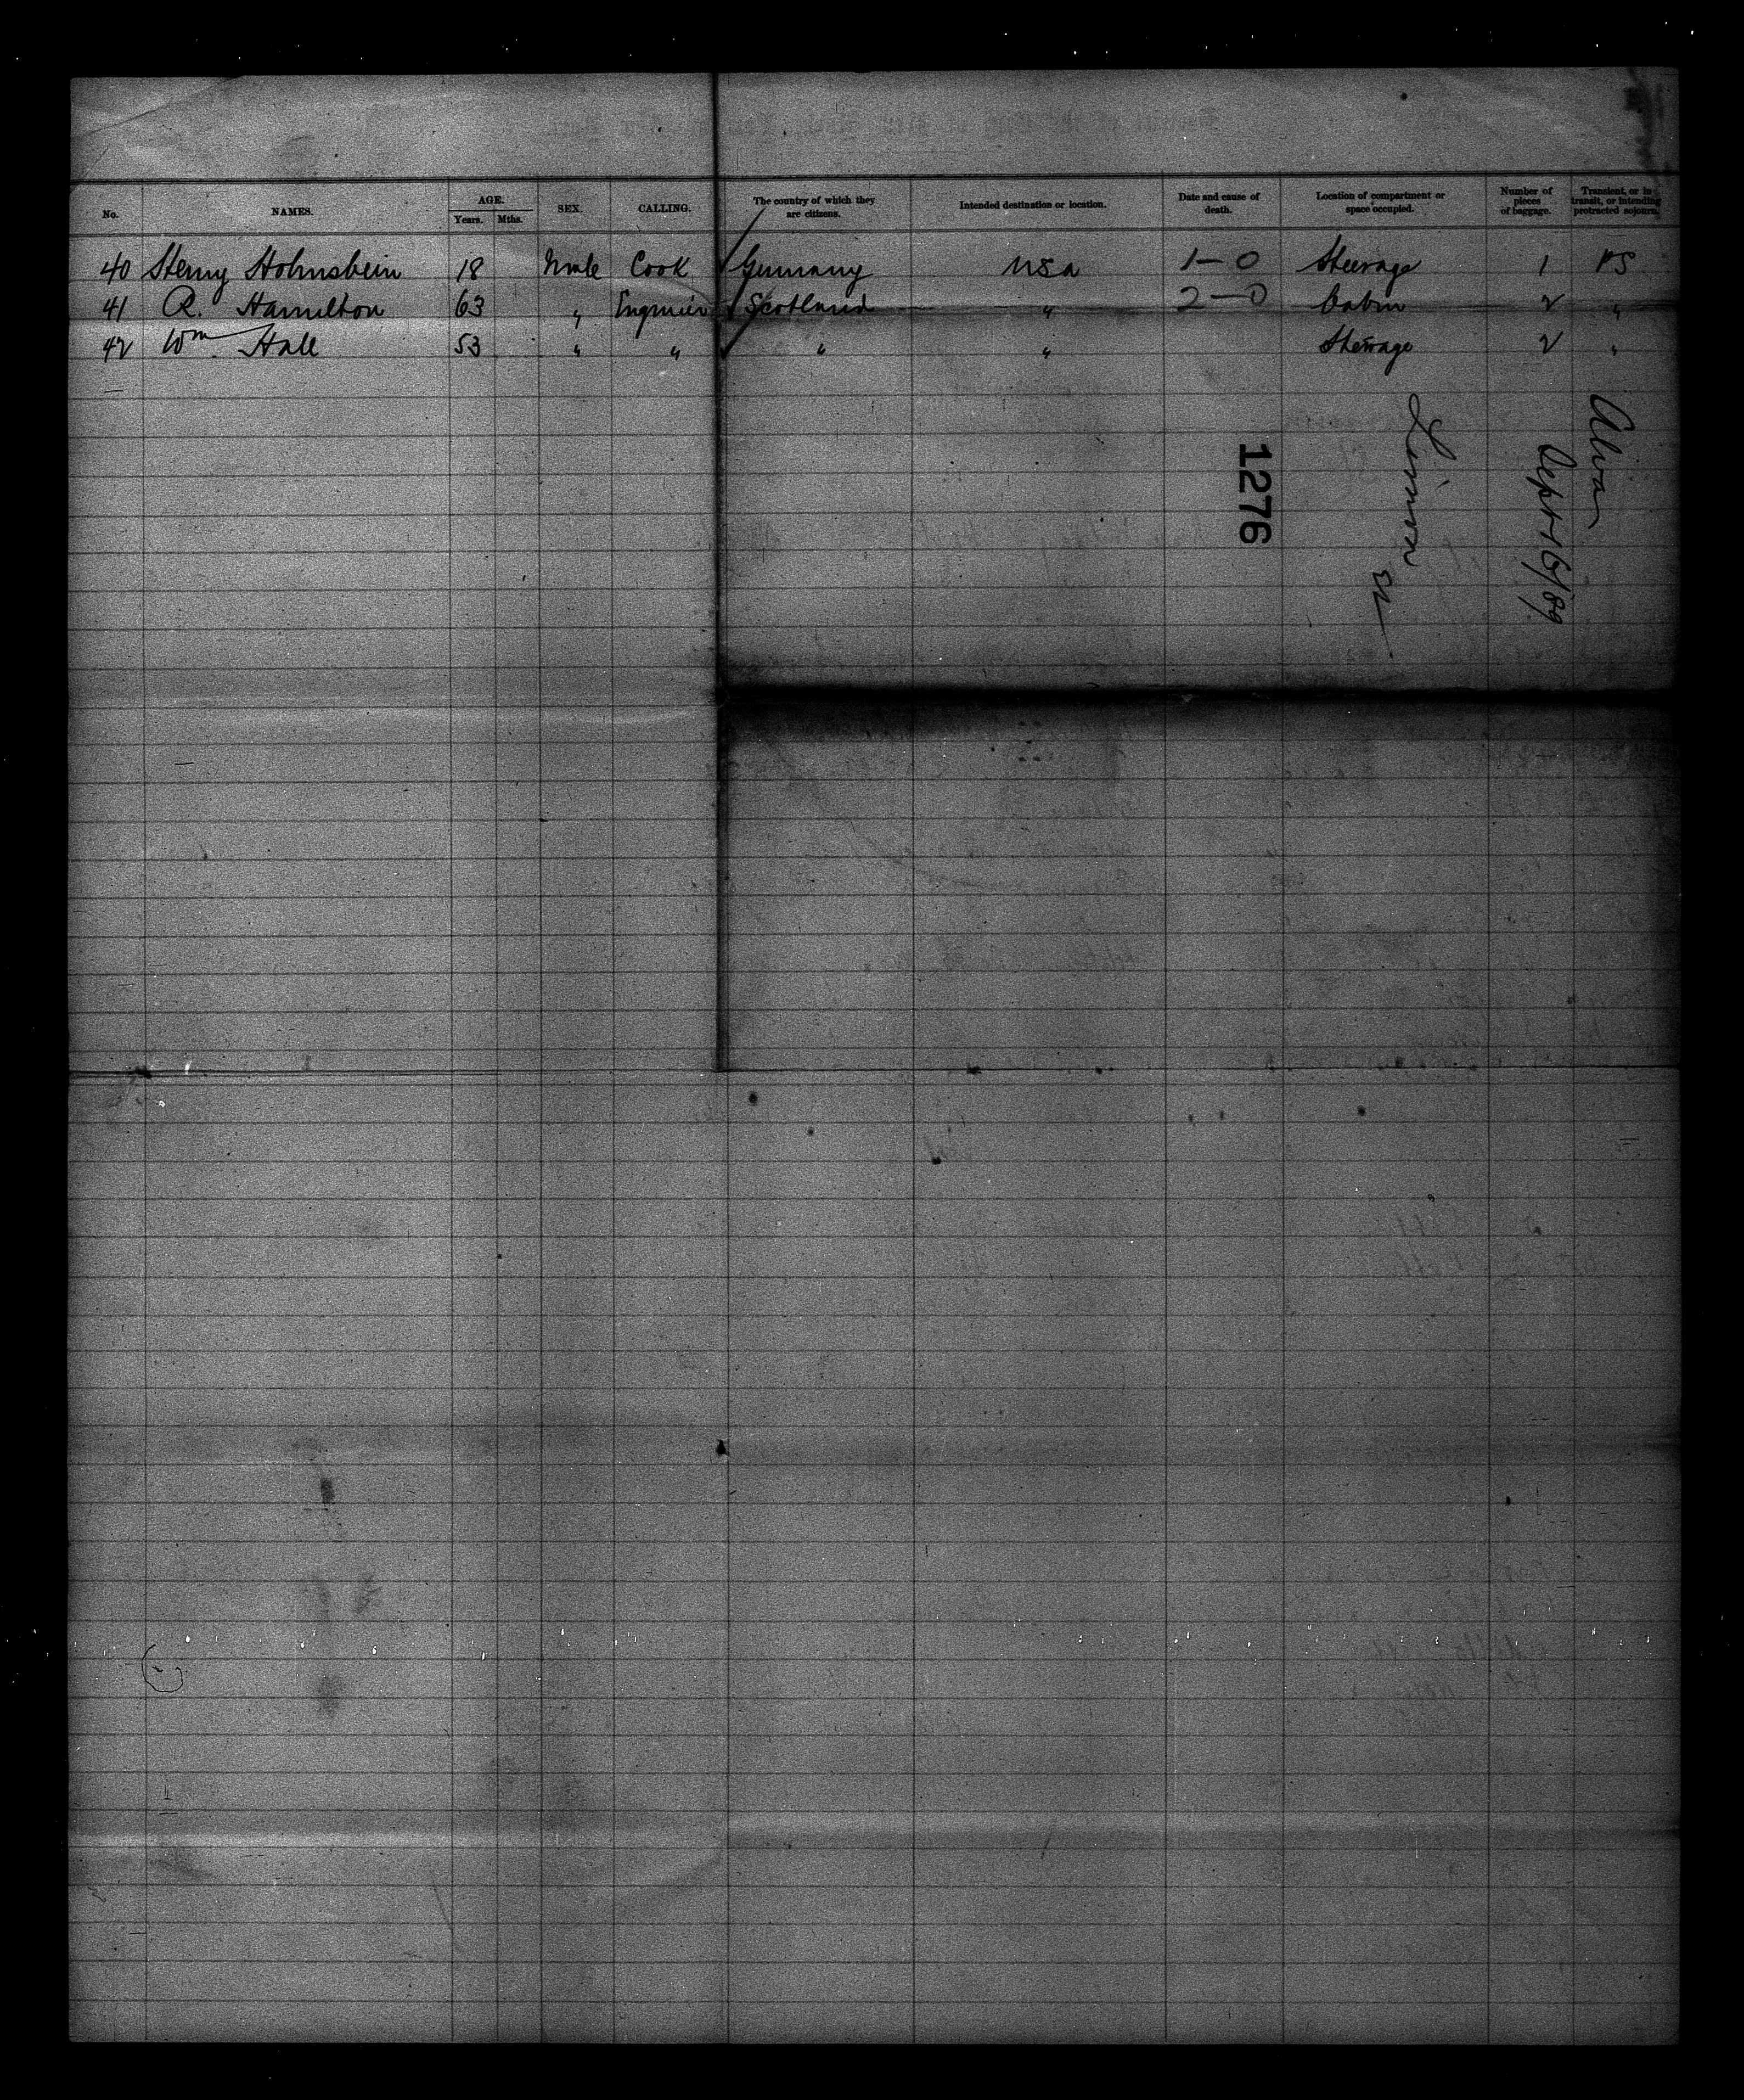 No. NAMES. AGE. Years. Mths. SEX. CALLING. The country of which they are citizens. Intended destination or location. Date and cause of death. Location of compartment or space occupied. Number of pieces of baggage. Transient, or in transit, or intending protracted sojourn.
40 Henry Hohnsbein 18 Male Cook Germany USA 1-0 Steerage 1 PS
41 R. Hamilton 63 " Engineer Scotland " 2-0 Cabin 2 "
42 Wm Hall 53 " " " " Steerage 2 "
Alva
Sept 16/89
1276